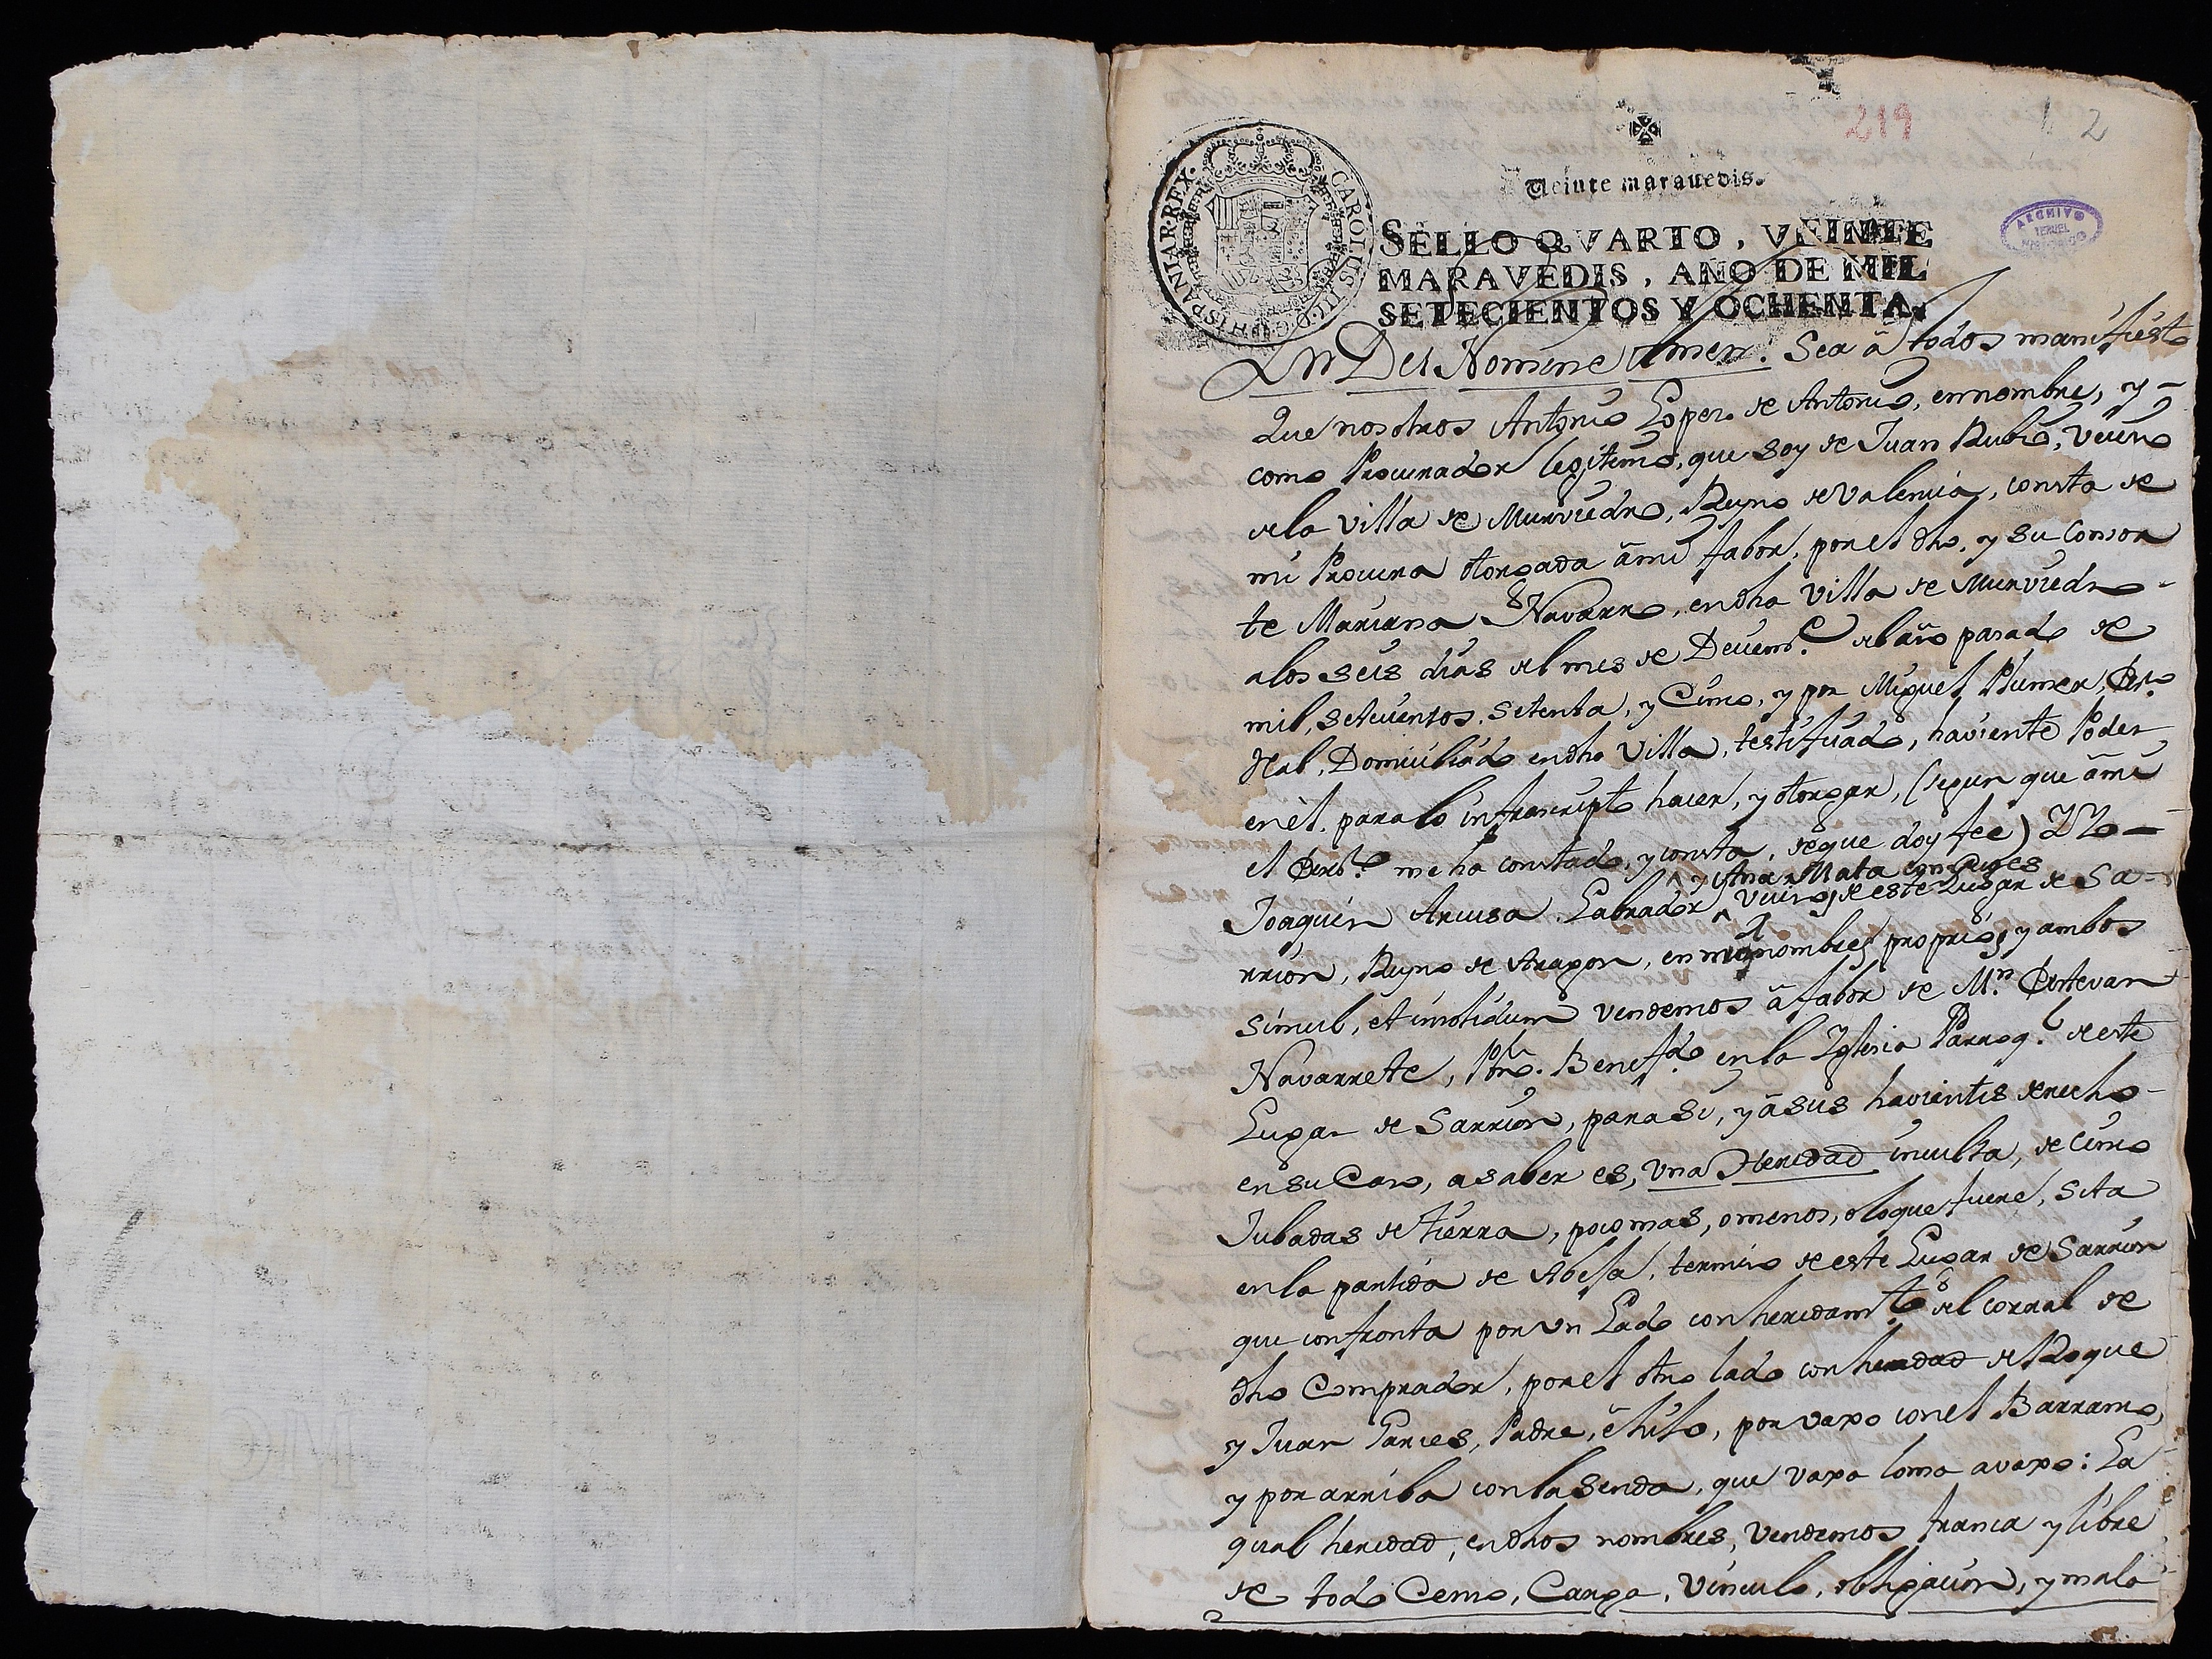 219
2
Veinte maravedis.
CAROLUS III D.G. HISPANIAR. REX.
SELLO QVARTO, VEINTE
MARAVEDIS, AÑO DE MIL
SETECIENTOS Y OCHENTA.
ARCHIVO
TERUEL
HISTORICO
In Dei Nomine Amen. Sea â todos manifiesto
Que nosotros Antonio Lopez de Antonio, en nombre, y
como Procurador legitimo, que soy de Juan Rubio, Vecino
de la Villa de Murviedro, Reyno de Valencia, consta de
mi Procura otorgada âmi fabor, por el dho, y su Consor
te Mariana Navarro, en dha Villa de Murviedro
a los seis dias del mes de Deciembe. del año pasado de
mil, setecientos, setenta, y Cinco, y por Miguel Plumer, Esno
Real, Domiciliado en dha Villa, testificada, haviente Poder
en él, para lo infrascripto hacer, y otorgar, (segun que âmi
el Escribo. me ha constado, y consta, de que doy fee) Y Yo
y Ana Mata Conyuges
Joaquin Arcusa Labrador Vecinos de este Lugar de Sa-
rrion, Reyno de Aragon, en nombres proprios, y ambos
simul, et insolidum vendemos â fabor de Mn. Estevan
Navarrete, Pbro. Benefdo. en la Iglesia Parroql. de este
Lugar de Sarrion, para si, y â sus havientes derecho
en su Caso, a saber es, una Heredad inculta, de cinco
Jubadas de tierra, poco mas, o menos, o lo que fuere, sita
en la partida de Abeja, termino de este Lugar de Sarrion
que confronta por un Lado con heredamto. del corral de
dho Comprador, por el otro lado con heredad de Roque
y Juan Garces, Padre, è hijo, por vaxo con el Barranco,
y por arriba con la senda, que vaxa loma avaxo: La
qual heredad, en dhos nombres, vendemos franca y libre
de todo Censo, Carga, Vinculo, obligacion, y mala